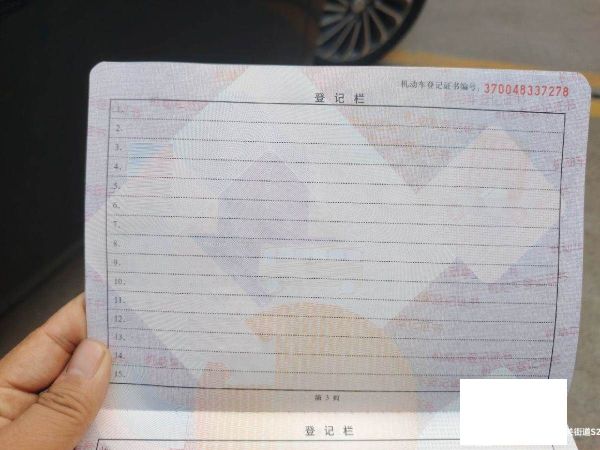 机动车登记证书编号：370048337278
登记栏
1.
2.
3.
4.
5.
6.
7.
8.
9.
10.
11.
12.
13.
14.
15.
第 3 页
登记栏
街道S2